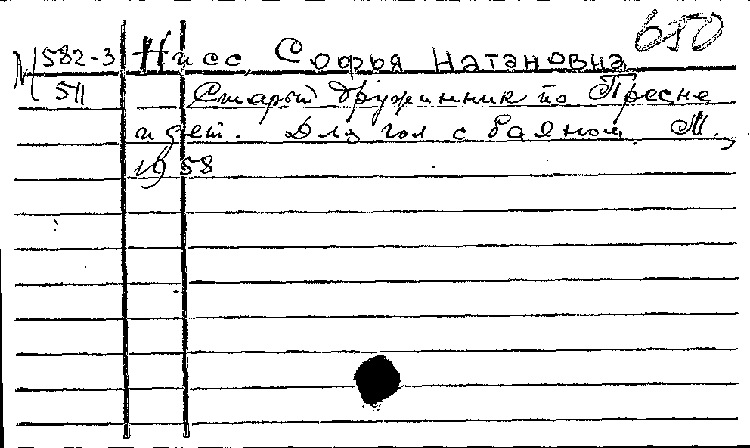 650
М582-3 Нисс, Софья Натановна
511 Старый дружинник по Пресне
идет. Для гол с баяном. М.,
1958